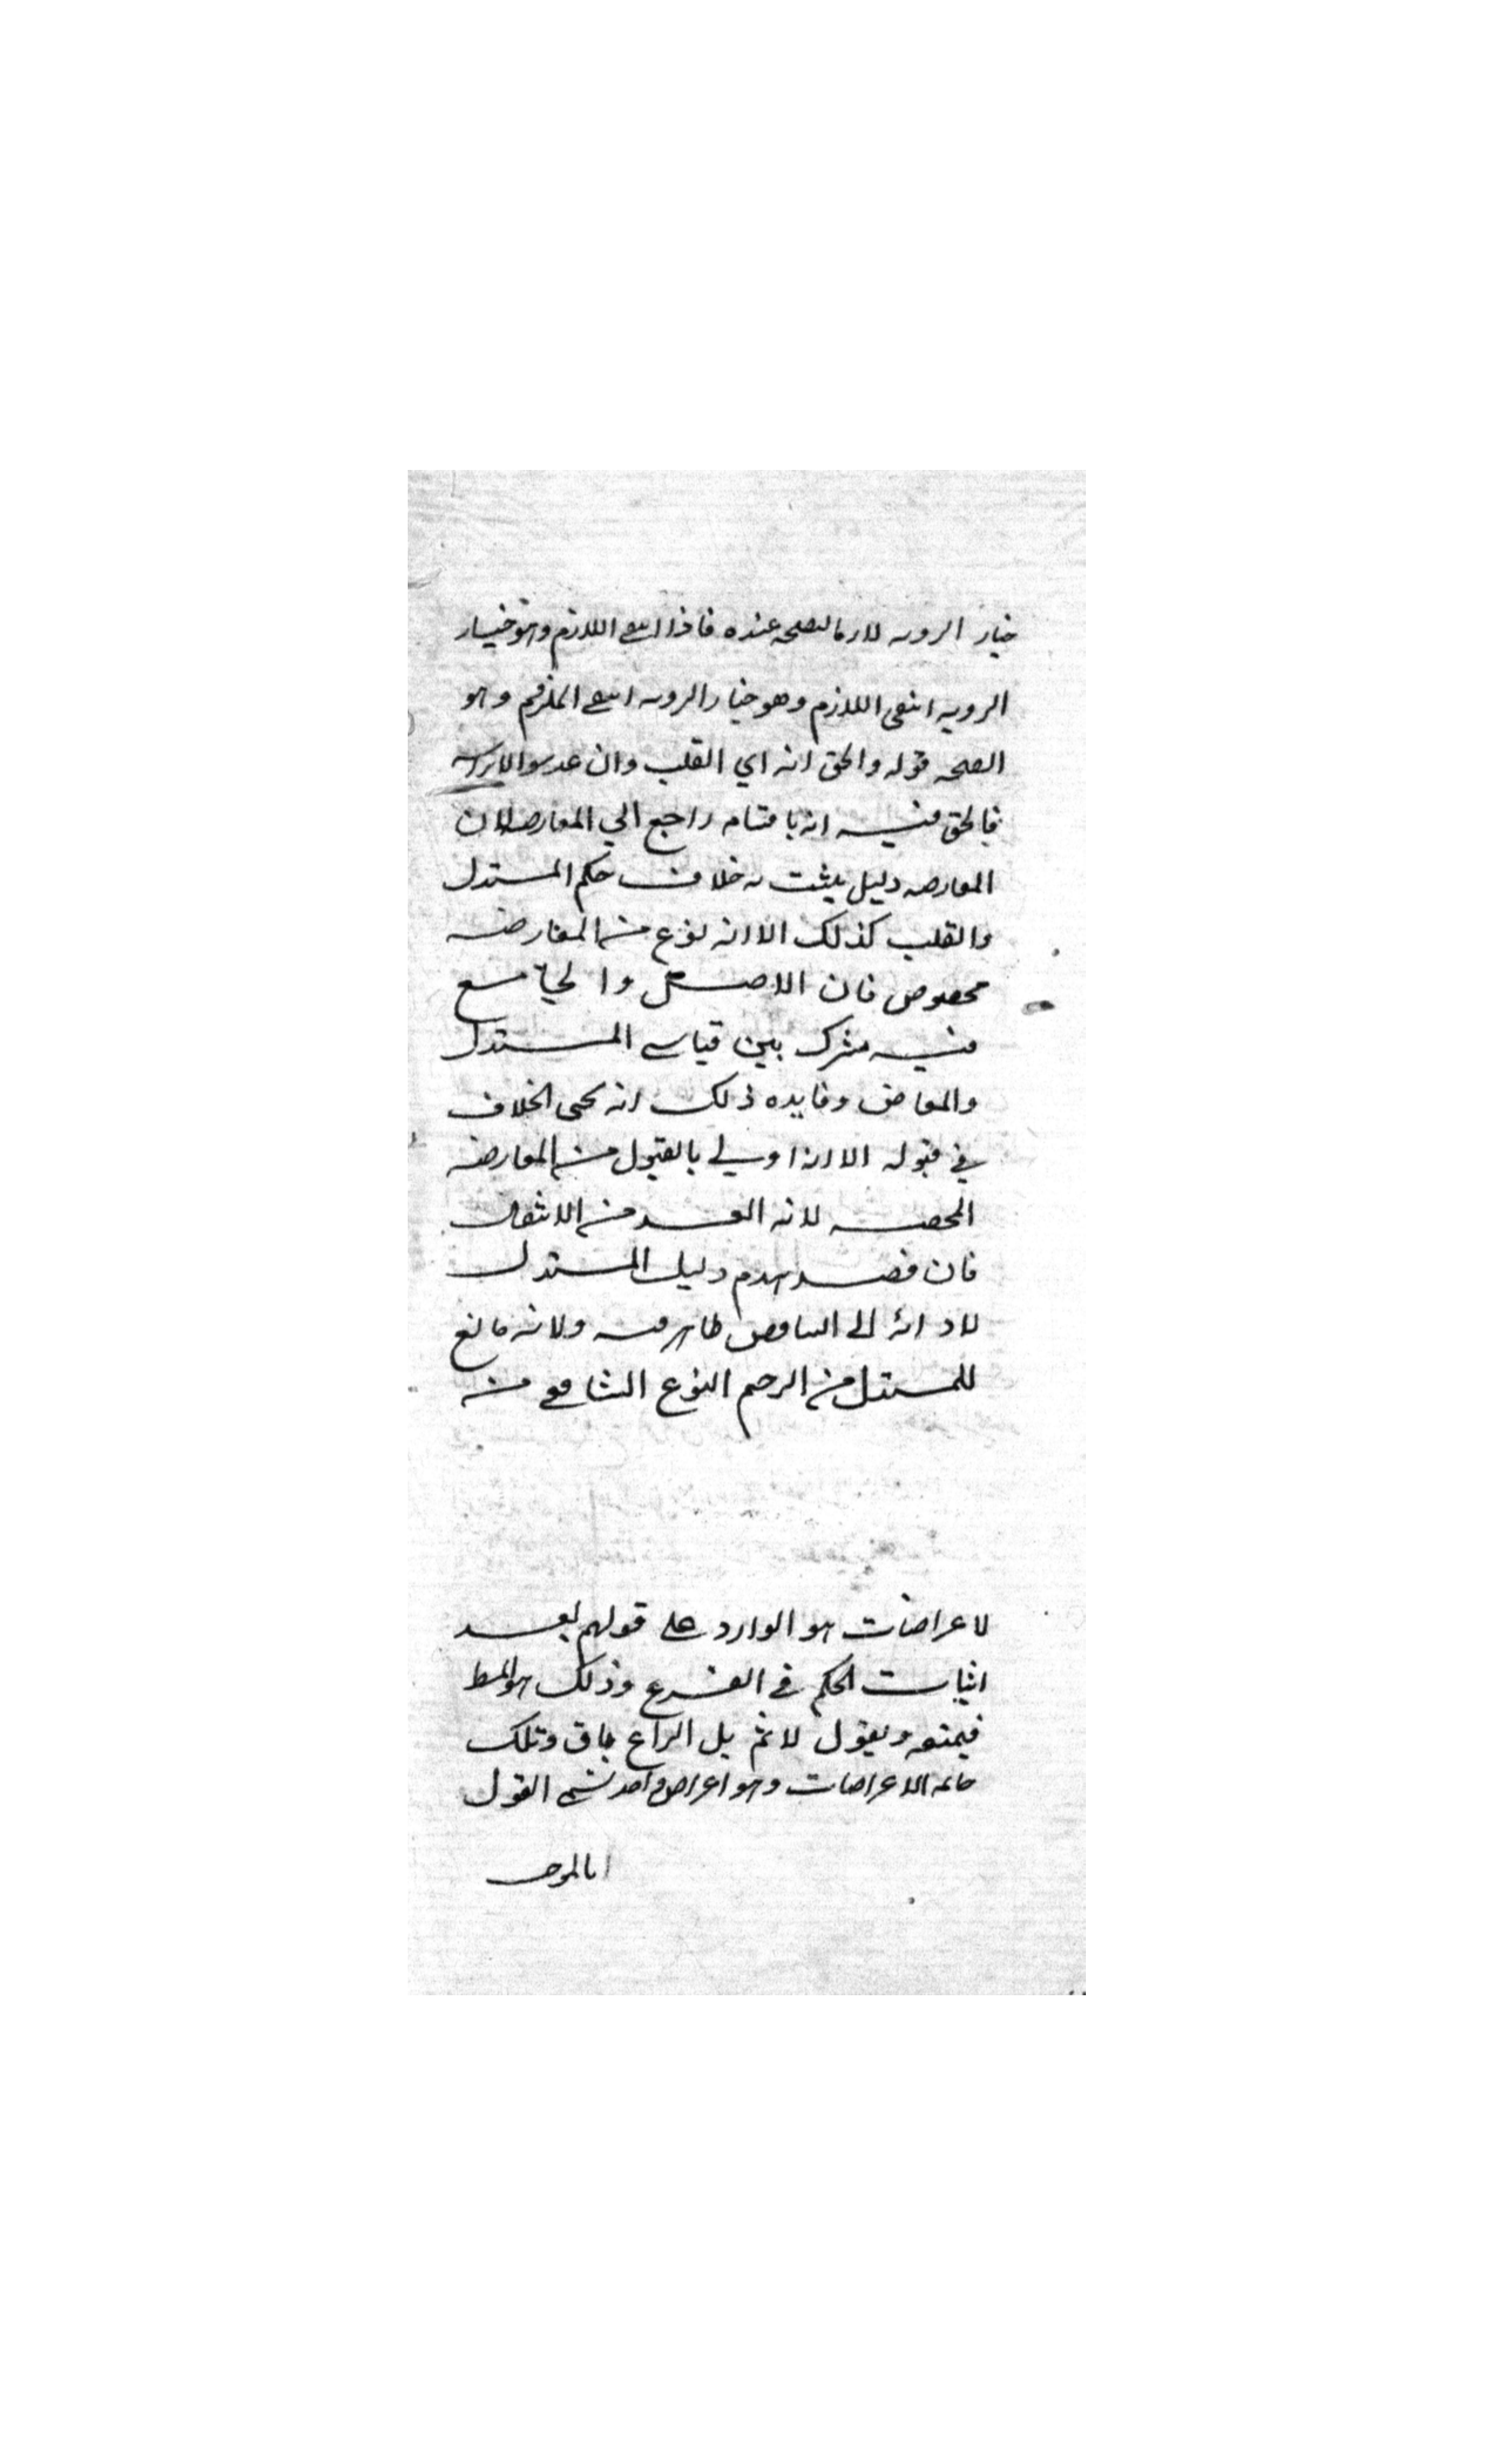 خيار الرويه لازما لصحه عنده فاذا انتفى اللازم وهو خيار
الرويه انتفى اللازم وهو خيار الرويه انتفى الملزوم وهو
الصحه قوله والحق انه اي القلب وان عد سوالا براسه
فالحق فيه انه باقسامه راجع الي المعارضه لان
المعارضه دليل يثبت به خلاف حكم المستدل
والقلب كذلك الا انه نوع من المعارضه
مخصوص فان الاصل والجامع
فيه مشترك بين قياسي المستدل
والمعارض وفايده ذلك انه يجي الخلاف
في قبوله الا انه اولي بالقبول من المعارضه
المحضه لانه ابعد من الانتقال
فان قصد هدم دليل المستدل
لادائه الى التناقض ظاهر فيه ولانه مانع
للمستدل من الترجيح النوع السابع من
لاعراضات هو الوارد على قولهم بعد
اثبات الحكم في الفرع وذلك هو المط
فيمنعه ويقول لا نم بل النزاع باق وتلك
خاتمه الاعراضات وهو اعراض واحد يسمى القول
بالموجب